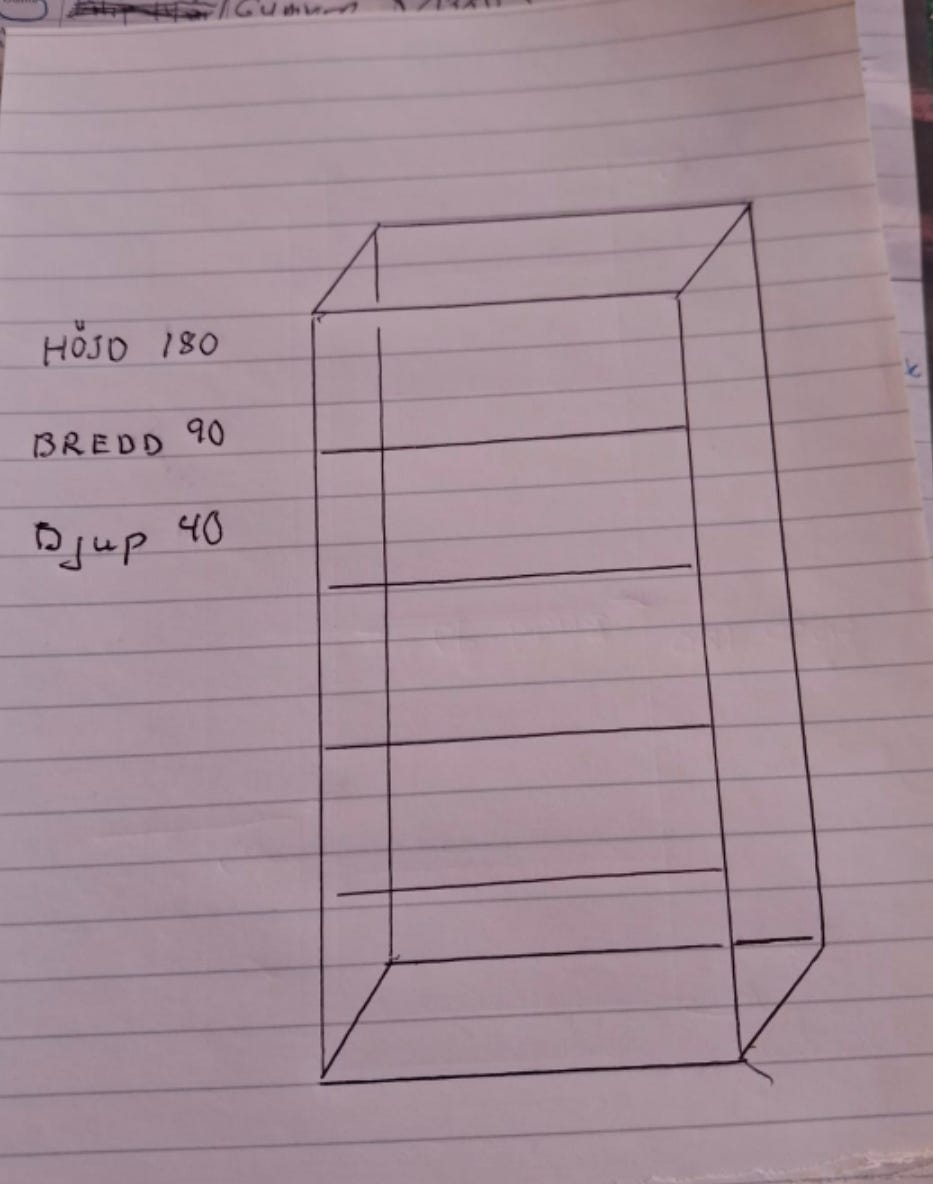 HÖJD 180
BREDD 90
Djup 40